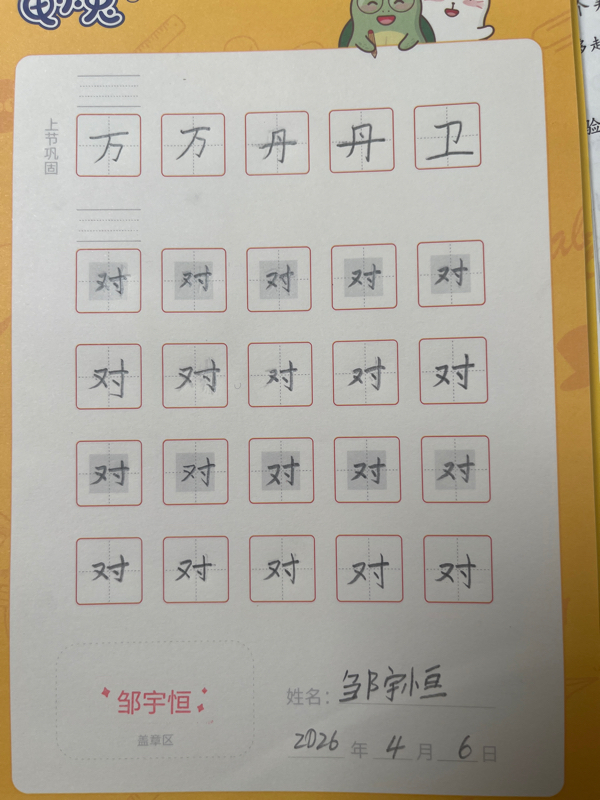 上节巩固
万 万 丹 丹 卫
对 对 对 对 对
对 对 对 对 对
对 对 对 对 对
对 对 对 对 对
邹宇恒
盖章区
姓名: 邹宇恒
2026 年 4 月 6 日
验